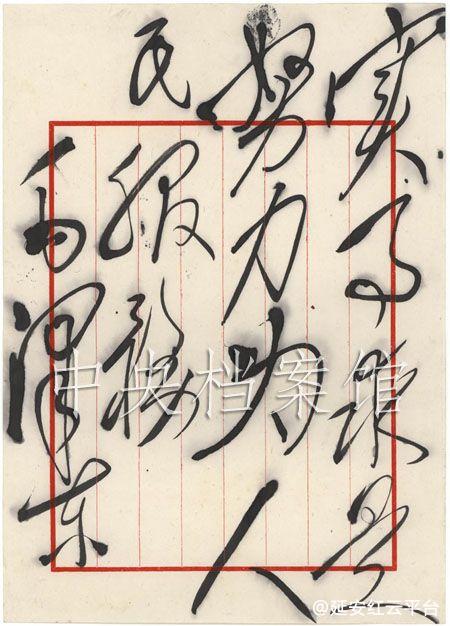 实事求是
努力为人
民
服務
毛泽东
中央档案馆
@延安红云平台